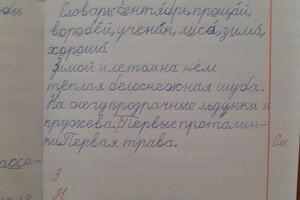 ды
Словарь: сентябрь, прощай,
воробей, ученик, лиса, зима,
хорошо
Зимой и летом на нём
тёплая белоснежная шуба.
На снегу прозрачные льдинки и
кружева. Первые проталин-
ки. Первая трава.
См
ассе-
З
Н